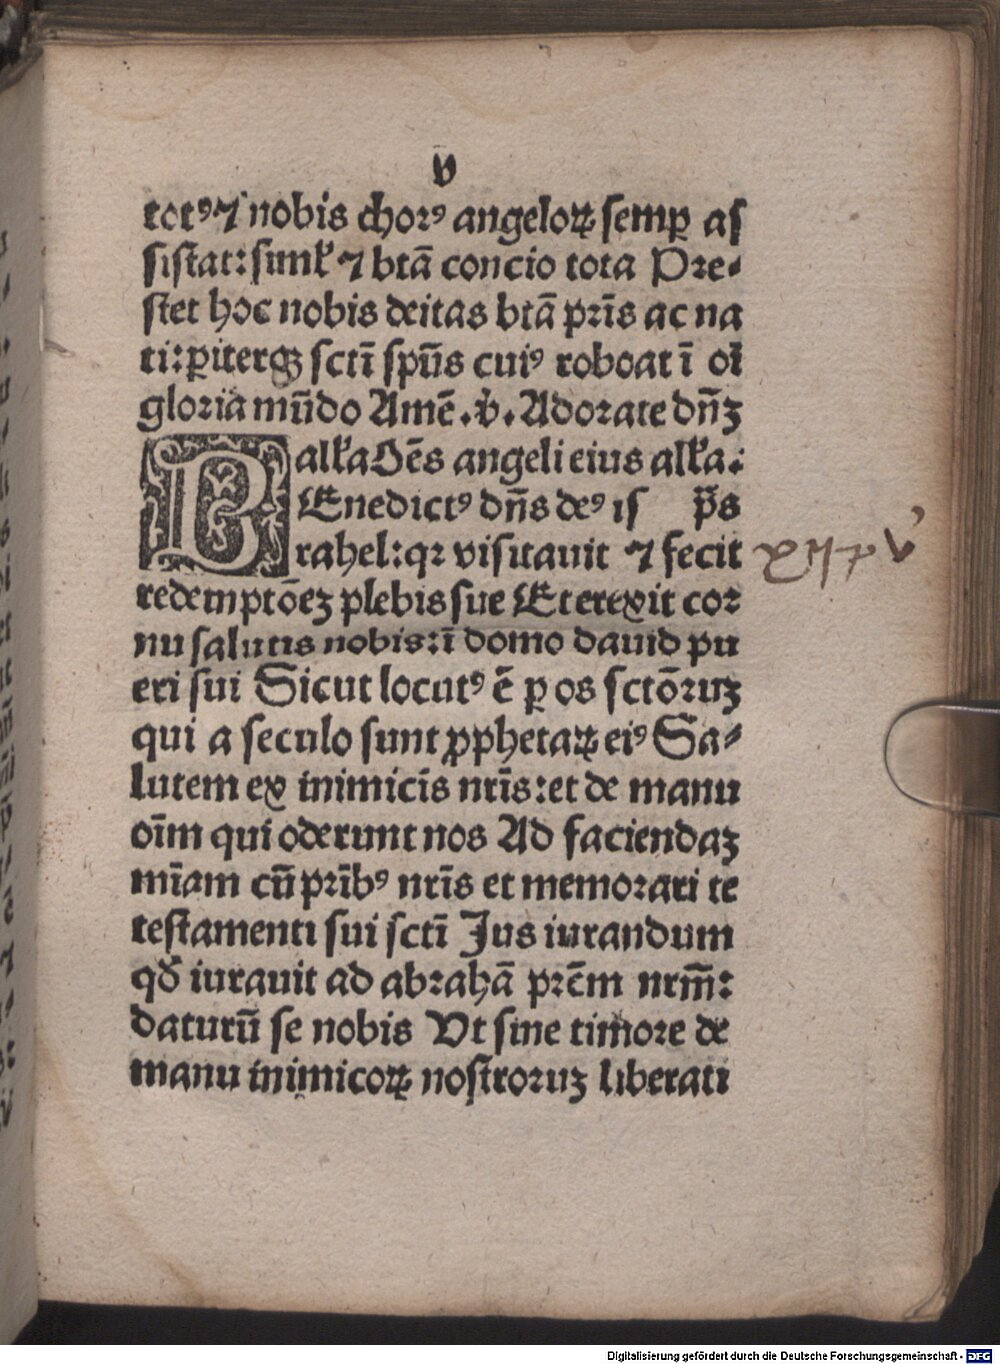 v
totꝰ ⁊ nobis chorꝰ angeloꝝ semꝑ as
sistat: siml̕ ⁊ btā concio tota Pre-
stet hoc nobis deitas btā pr̄is ac na
ti: ꝑiterqꝫ sctī spūs cuiꝰ reboat ī oī
gloria mūdo Amē. v̕. Adorate dn̄ꝫ
all̕a Oēs angeli eius all̕a:
BEnedictꝰ dn̄s deꝰ is p̄s
rahel: qr visitauit ⁊ fecit
redemptōeꝫ plebis sue Et erexit cor
nu salutis nobis: ī domo dauid pu
eri sui Sicut locutꝰ ē ꝑ os sctōruꝫ
qui a seculo sunt ꝓphetaꝝ eiꝰ Sa-
lutem ex inimicis nr̄is: et de manu
oīm qui oderunt nos Ad faciendaꝫ
mīam cū pr̄ibꝰ nr̄is et memorari te
testamenti sui sctī Jus iurandum
qđ iurauit ad abrahā pr̄em nr̄m̄:
daturū se nobis Vt sine timore de
manu inimicoꝝ nostroruꝫ liberati
Digitalisierung gefördert durch die Deutsche Forschungsgemeinschaft - DFG